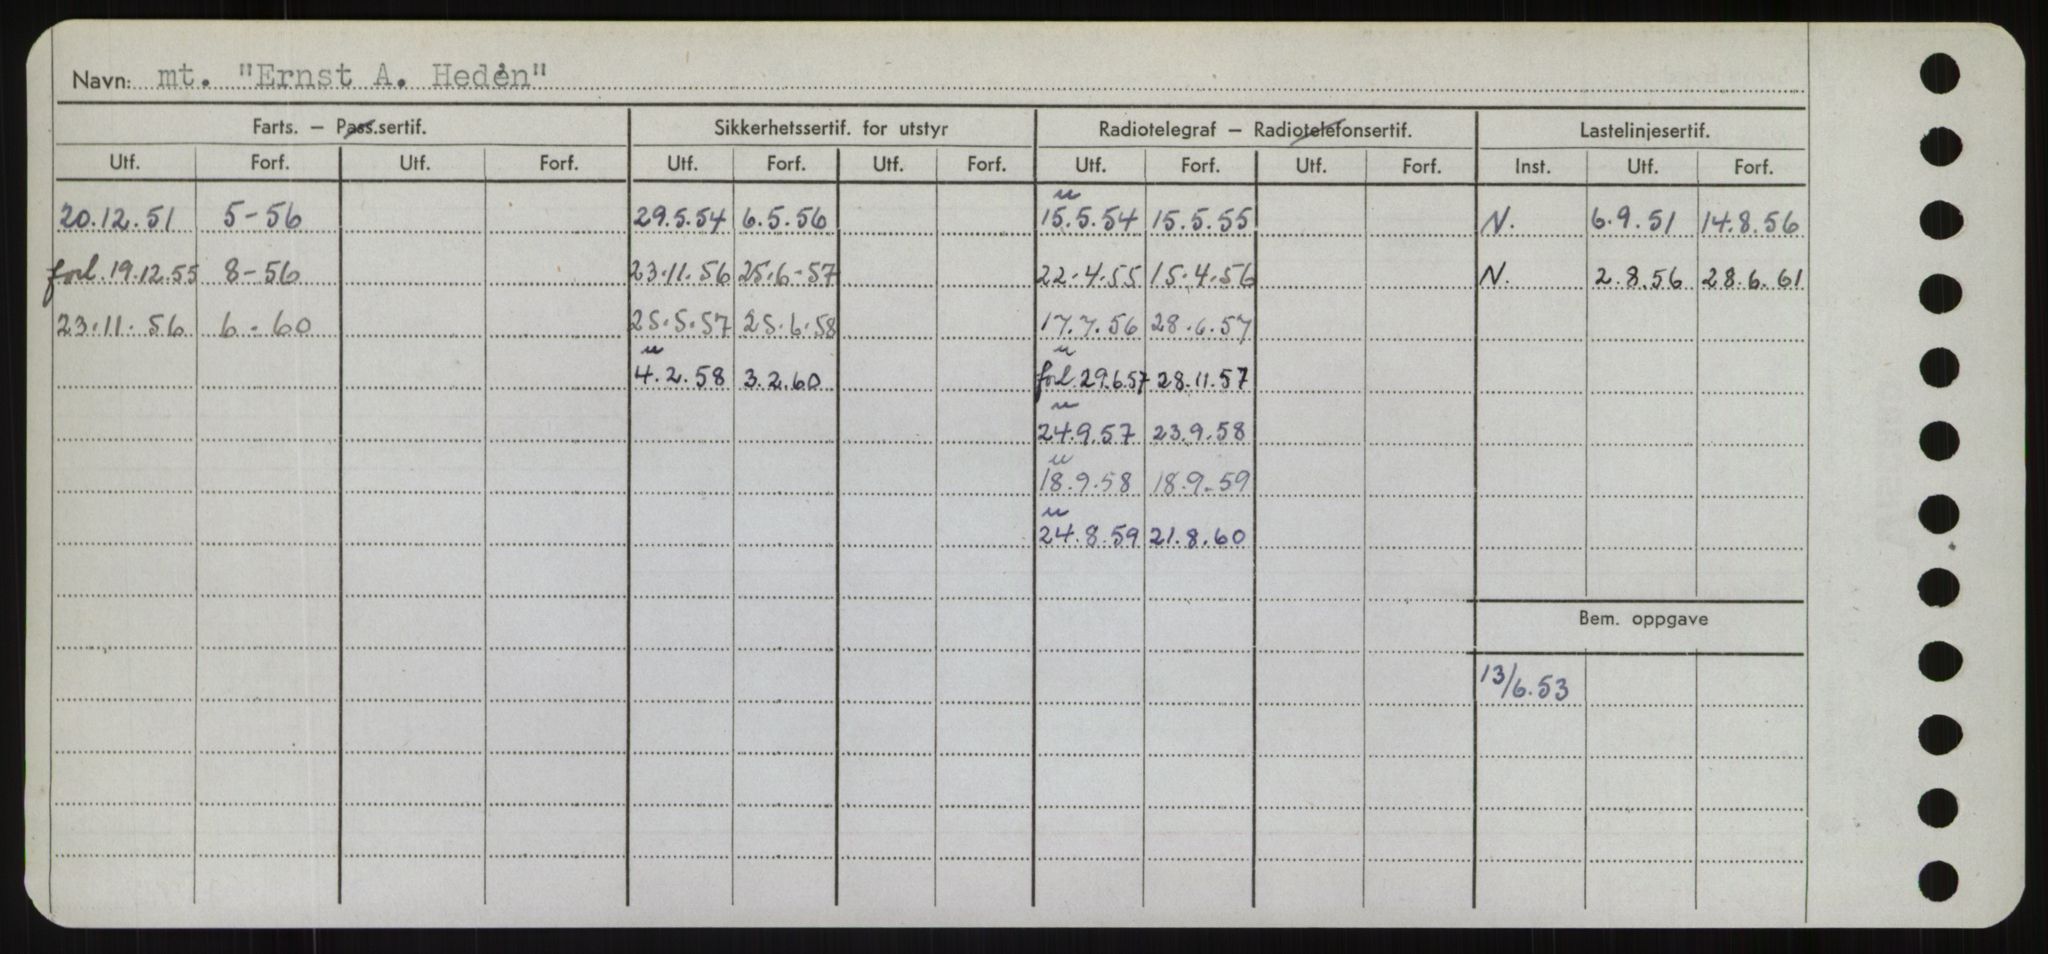 Navn: mt. "Ernst A. Hedén"
Farts. – Pass.sertif. Sikkerhetssertif. for utstyr Radiotelegraf – Radiotelefonsertif. Lastelinjesertif.
Utf. Forf. Utf. Forf. Utf. Forf. Utf. Forf. Utf. Forf. Utf. Forf. Inst. Utf. Forf.
u
20.12.51 5-56 29.5.54 6.5.56 15.5.54 15.5.55 N. 6.9.51 14.8.56
forl. 19.12.55 8-56 23.11.56 25.6-57 22.4.55 15.4.56 N. 2.8.56 28.6.61
23.11.56 6-60 25.5.57 25.6.58 17.7.56 28.6.57
u u
4.2.58 3.2.60 forl. 29.6.57 28.11.57
u
24.9.57 23.9.58
u
18.9.58 18.9.59
u
24.8.59 21.8.60
Bem. oppgave
13/6.53